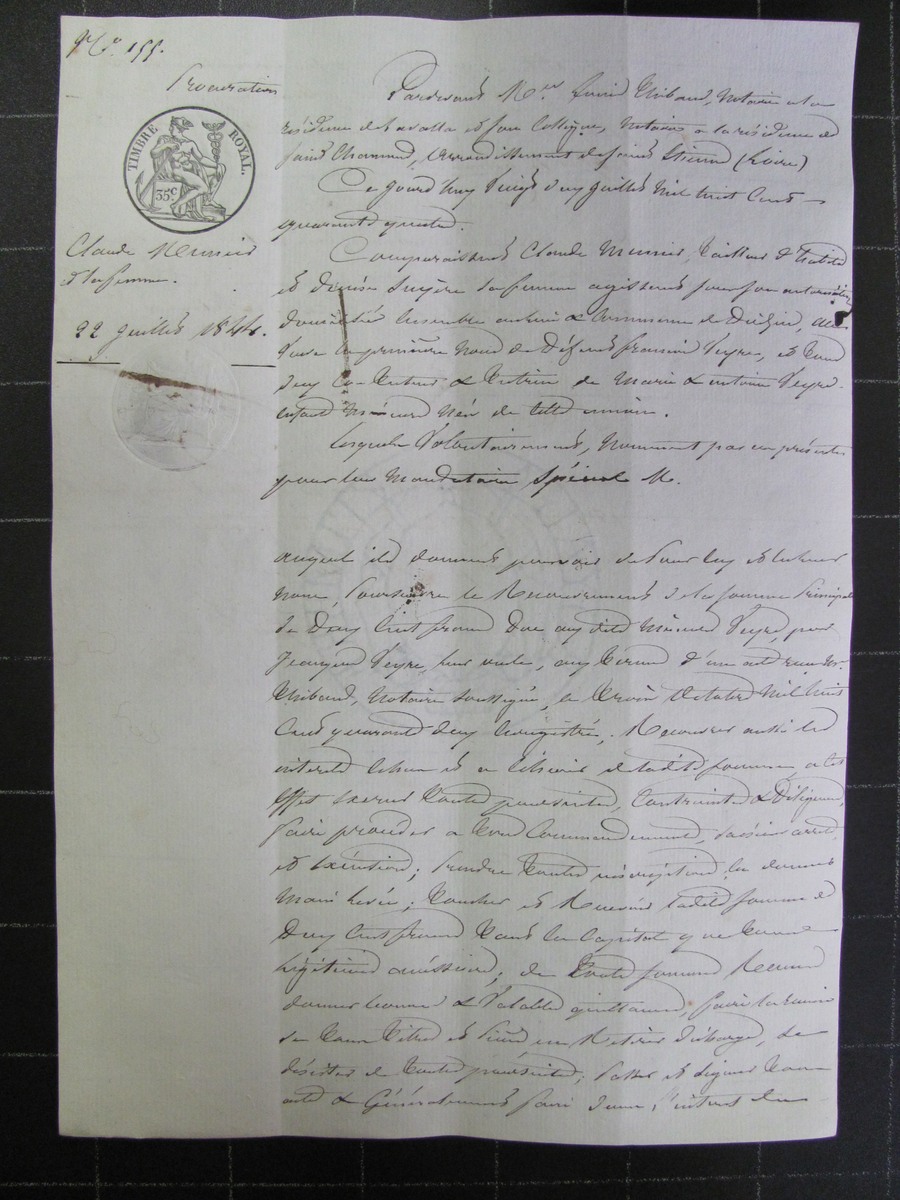 N.o 155.
Procuration
TIMBRE ROYAL.
35c.
Claude Meunier
et sa femme.
22 Juillet 1844.
Pardevant Me Thibaud, Notaire à la
résidence de et son Collègue, Notaire à la résidence de
Saint Chamond, arrondissement de Saint Etienne (Loire)
Ce jourd'huy Vingt deux Juillet Mil huit Cent
quarante quatre.
Comparaissent Claude Meunier, tailleur d'habits
et Denise sa femme agissant sous son autorisation
demeurant ensemble au lieu & Commune de
Veuve en premières Noces de Défunt François Veyre, et tous
deux Co-tuteurs & tutrice de Marie & Antoine Veyre
enfants Mineurs Nés de
Lesquels Volontairement, Nomment par ces présentes
pour leur Mandataire Spécial M.
auquel ils donnent pouvoir de pour eux et en leur
nom, Poursuivre le Recouvrement de la somme Principale
de Deux Cents francs Due auxdits Mineurs Veyre, par
Veyre, leur oncle, aux termes d'un acte reçu Me
Thibaud, Notaire soussigné, le trois Octobre Mil huit
Cent quarante deux Enregistré; Recouvrer aussi les
intérêts échus et à échoir de ladite somme, à cet
effet exercer toutes poursuites, Contraintes & Diligences,
faire procéder à tous Commandements, saisies arrêts
et exécutions; prendre toutes inscriptions, en donner
Main levée; toucher et Recevoir ladite somme de
Deux Cents francs tant en Capital que
légitimes accessoires; de toutes sommes Reçues
donner bonnes & Valables quittances, faire la remise
de tous titres et pièces en Retirer Décharge, se
désister de toutes poursuites; Passer et Signer tous
actes & Généralement faire dans l'intérêt des